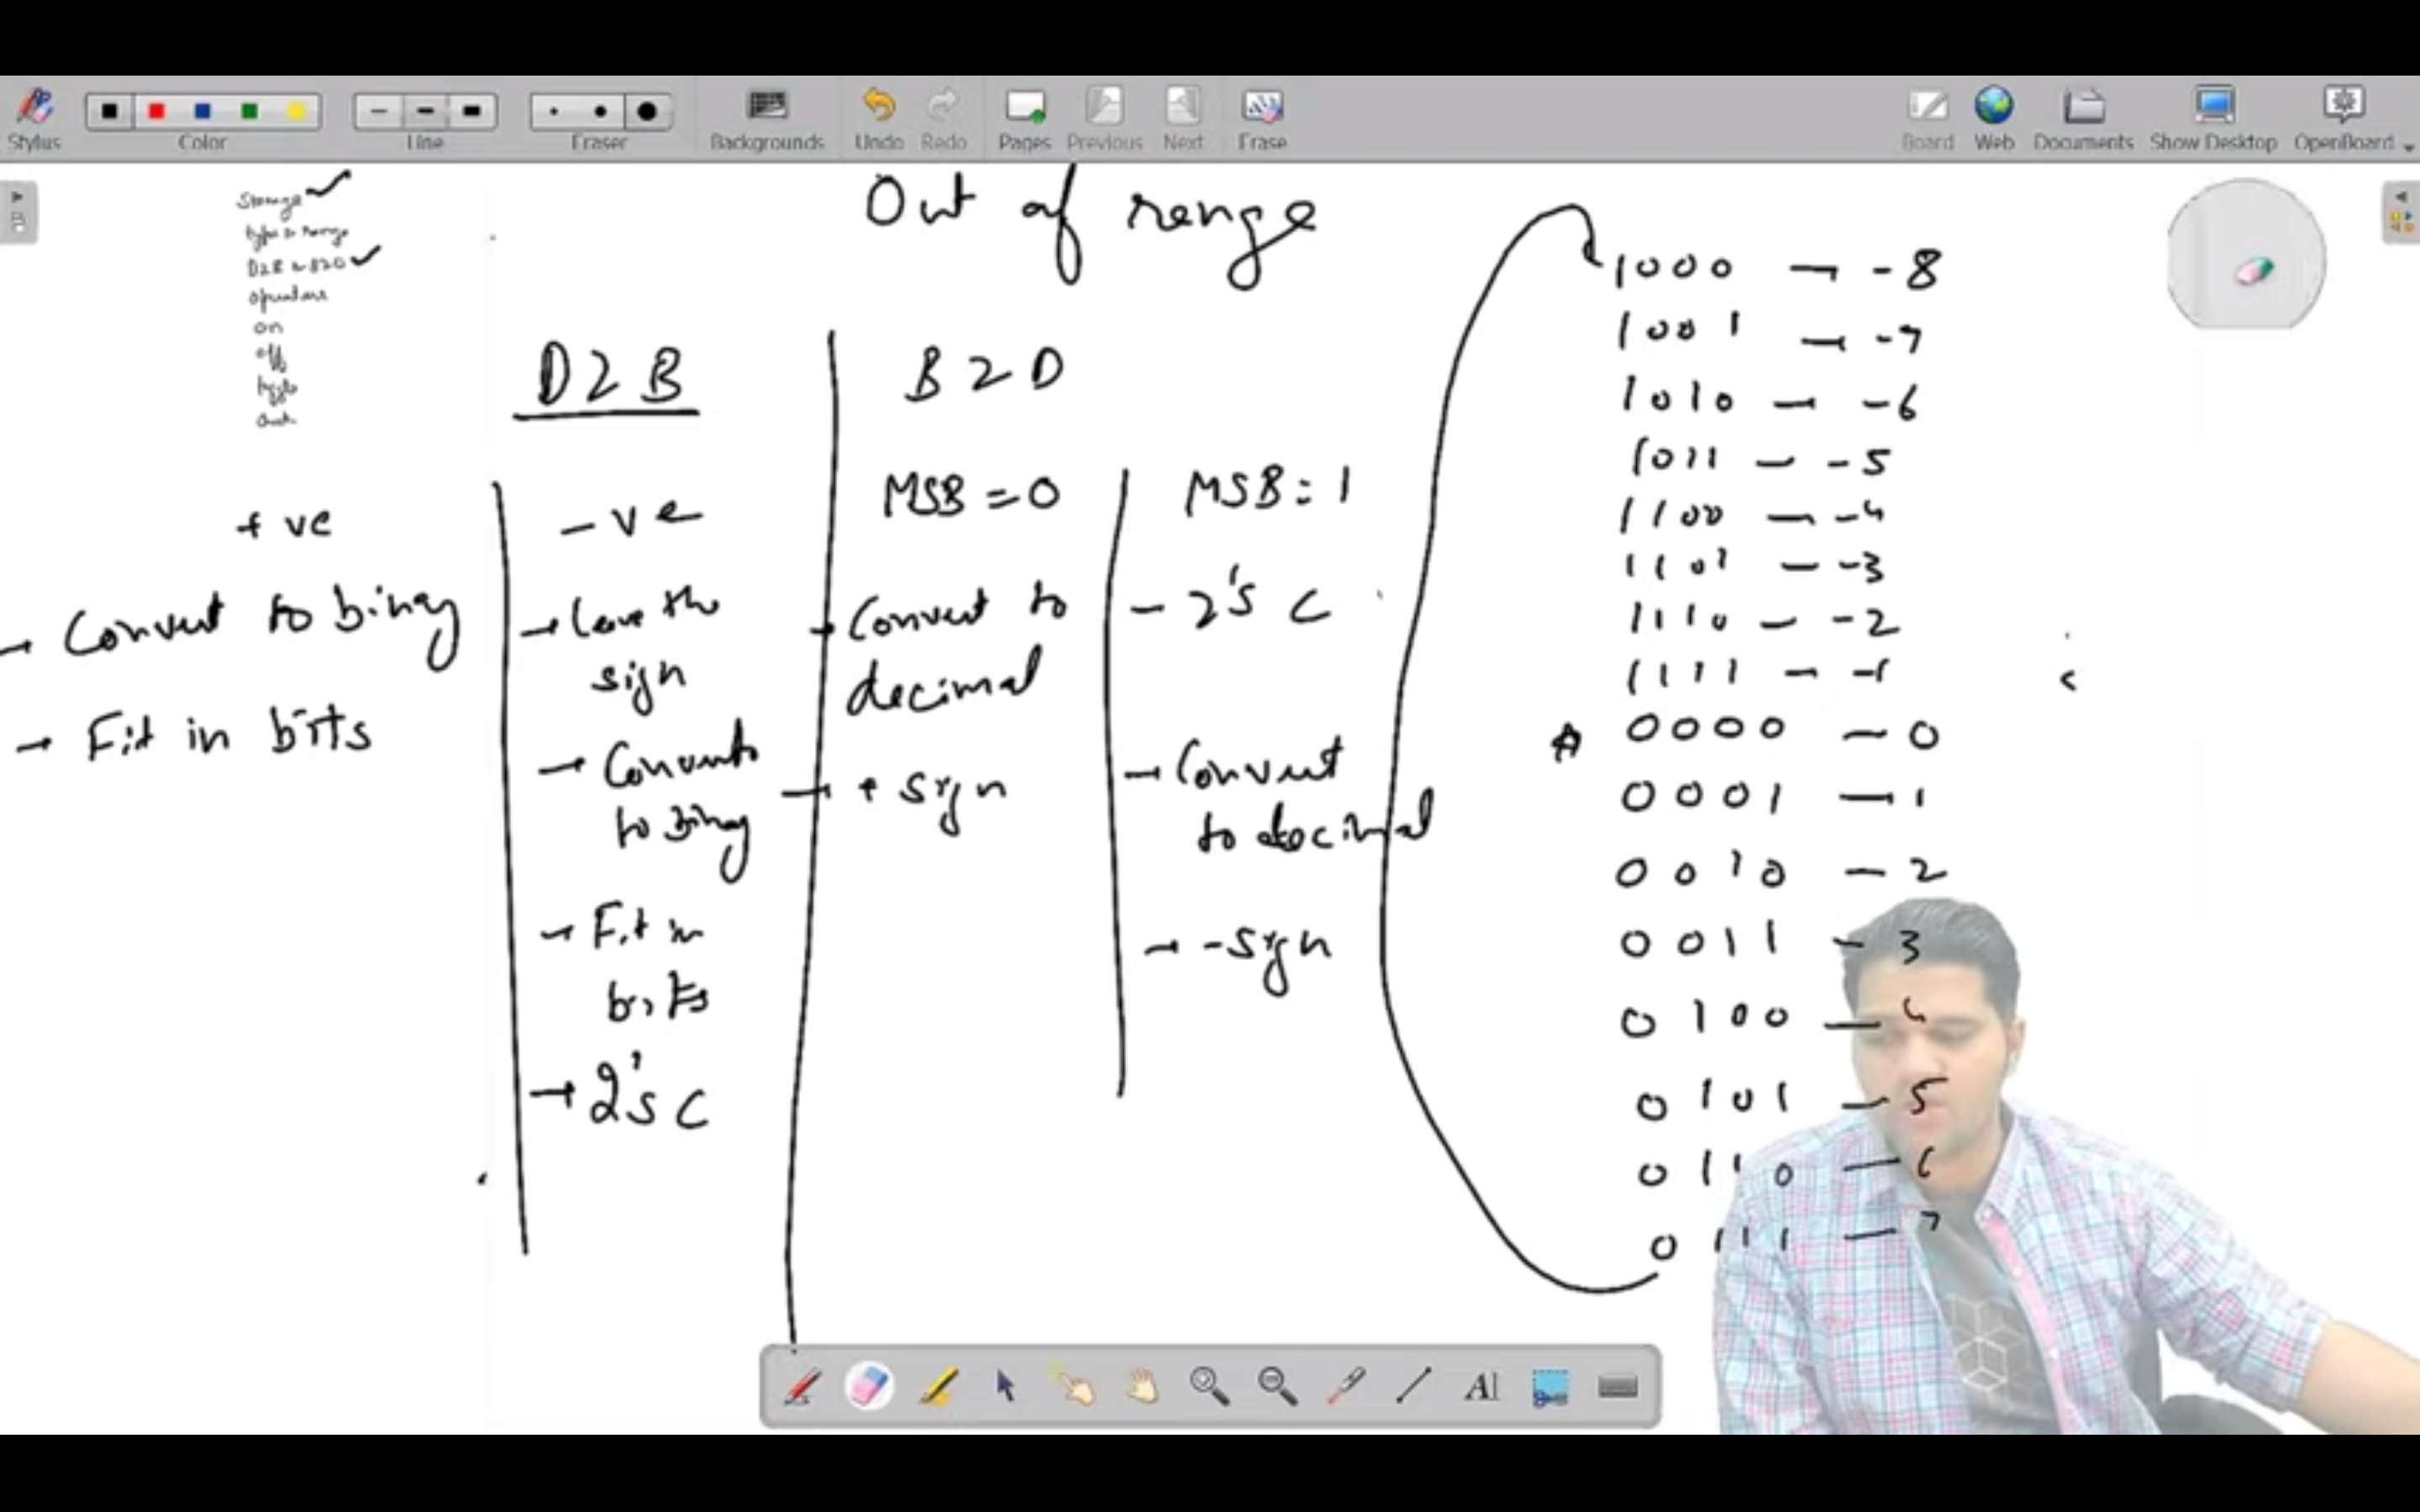 Stylus
Color
Line
Eraser
Backgrounds
Undo
Redo
Pages
Previous
Next
Erase
Board
Web
Documents
Show Desktop
OpenBoard
Storage
type & range
D2B & B2D
operations
on
off
toggle
check
Out of range
D2B
B2D
+ve
→ Convert to binary
→ Fit in bits
-ve
→ leave the
sign
→ Convert
to binary
→ Fit in
bits
→ 2's C
MSB = 0
→ Convert to
decimal
→ + sign
MSB = 1
- 2's C
→ Convert
to decimal
→ - sign
1000 — -8
1001 — -7
1010 — -6
1011 — -5
1100 — -4
1101 — -3
1110 — -2
1111 — -1
0000 — 0
0001 — 1
0010 — 2
0011 — 3
0100 — 4
0101 — 5
0110 — 6
0111 — 7
AI